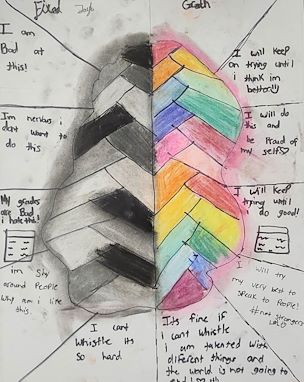 Fixed
Growth
I am
Bad at
this!
I will keep
on trying until
i think im
better!
Im nervous i
dont want to
do this
I will do
this and
be Proud of
my self
My grades
are Bad
i hate this!
I will keep
trying until
i do good!
im Shy
around People
Why am i like
this.
I will try
my very best to
speak to People!
I cant
Whistle its
so hard
Its fine if
i cant whistle
i am talented with
different things and
the world is not going to